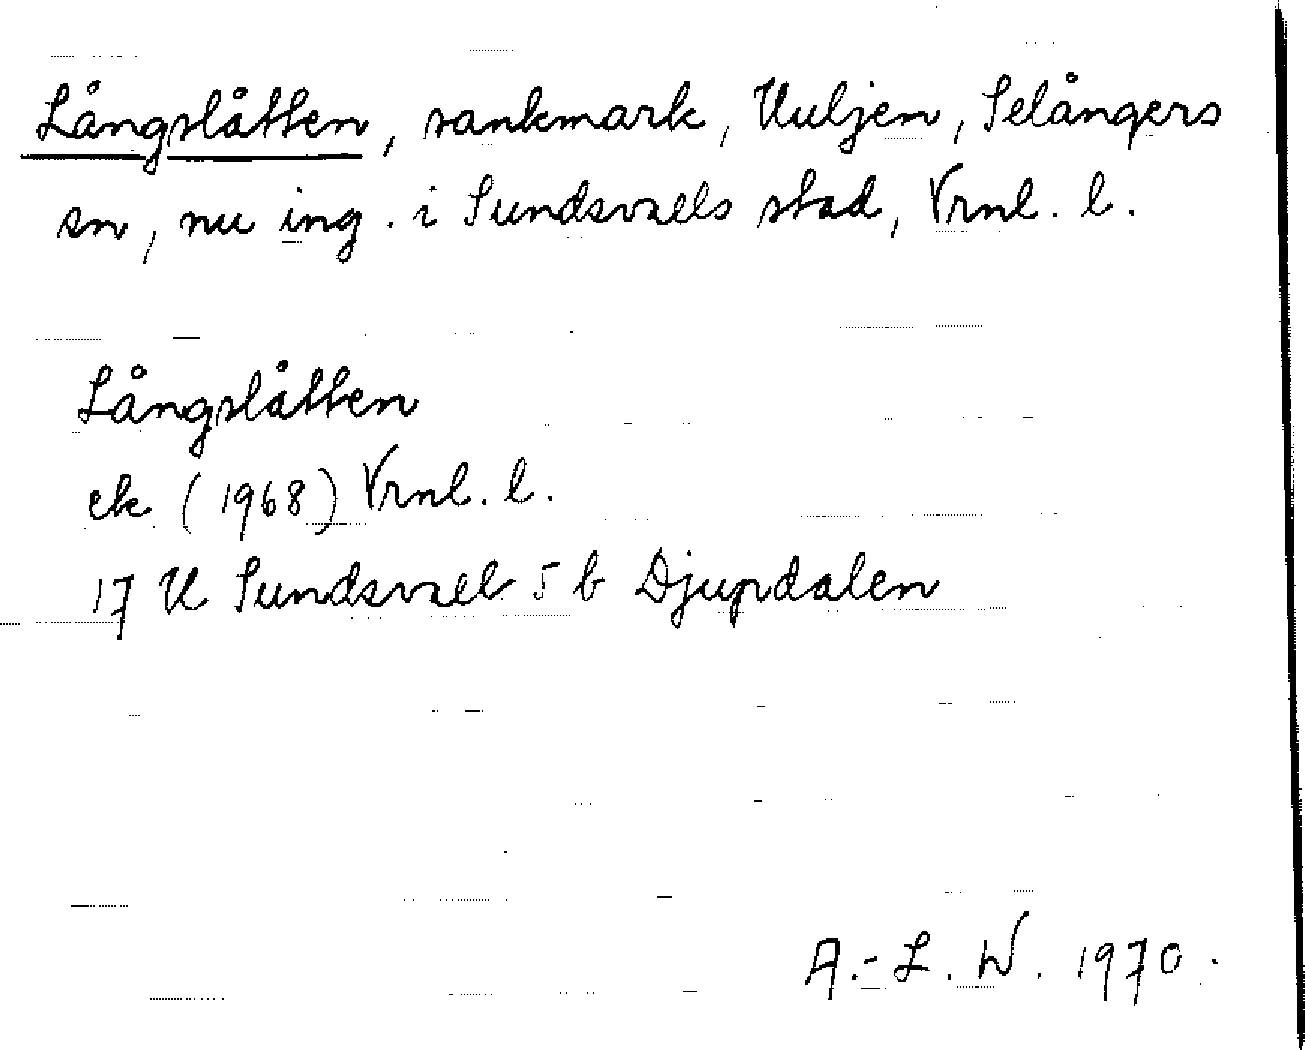 Långslåtten, sankmark, Huljen, Selångers
sn, nu ing. i Sundsvalls stad, Vrnl. l.
Långslåtten
ek (1968) Vrnl. l.
17 H Sundsvall 5 b Djupdalen
A.-L. W. 1970.